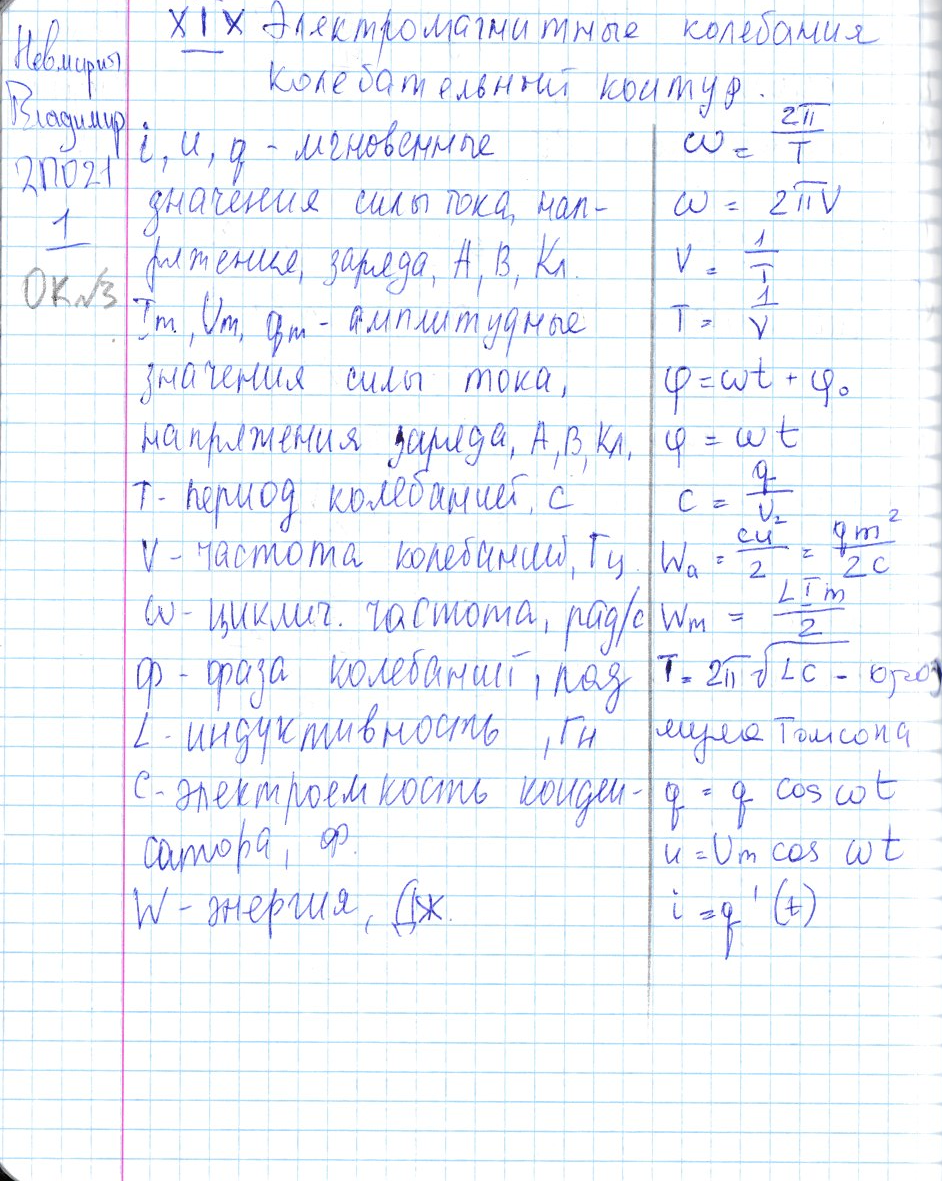 XIX Электромагнитные колебания
Колебательный контур.
Невмирич
Владимир
2П021
1
ОК№3
i, u, q - мгновенные
значения силы тока, нап-
ряжения, заряда, А, В, Кл.
Im, Um, qm - амплитудные
значения силы тока,
напряжения заряда, А, В, Кл,
T - период колебаний, с
V - частота колебаний, Гц
ω - циклич. частота, рад/с
φ - фаза колебаний, рад
L - индуктивность, Гн
C - электроемкость конден-
сатора, Ф.
W - энергия, Дж.
ω = 2π/T
ω = 2πV
V = 1/T
T = 1/V
φ = ωt + φ₀
φ = ωt
C = q/U
Wэ = cu²/2 = qm²/2C
Wm = LIm/2
T = 2π√LC - фор
мула Томсона
q = q cos ωt
u = Um cos ωt
i = q' (t)